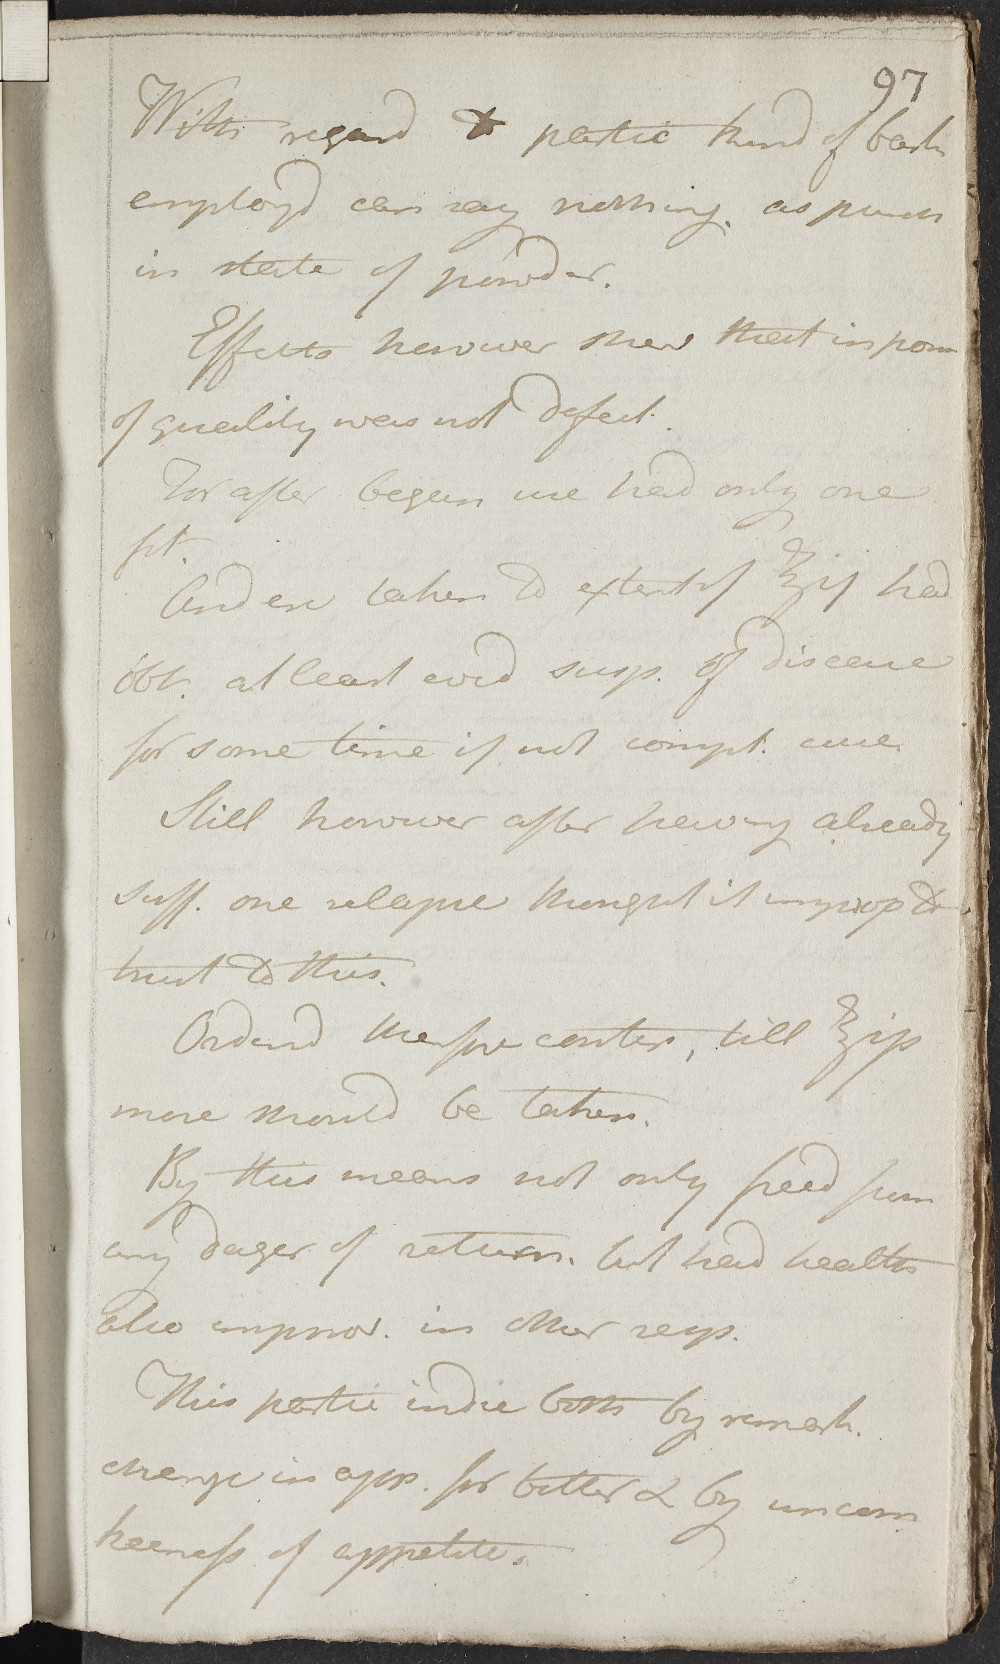 97
With regard to partic kind of bark
employd can say nothing. as purch
in state of powder.
Effects however shew that in poin
of quality was not defect.
For after begun use had only one
fit.
And ere taken to extent of ℥ij had
obt. at least evid susp. of disease
for some time if not compt. cure
Still however after having already
suff. one relapse thought it improp to
trust to this.
Orderd therefore contin, till ℥iſs
more should be taken.
By this means not only freed from
any dager of return. but had health
also improv. in other resp.
This partic indic both by remark.
change in app. for better & by uncom
keeness of appetite.